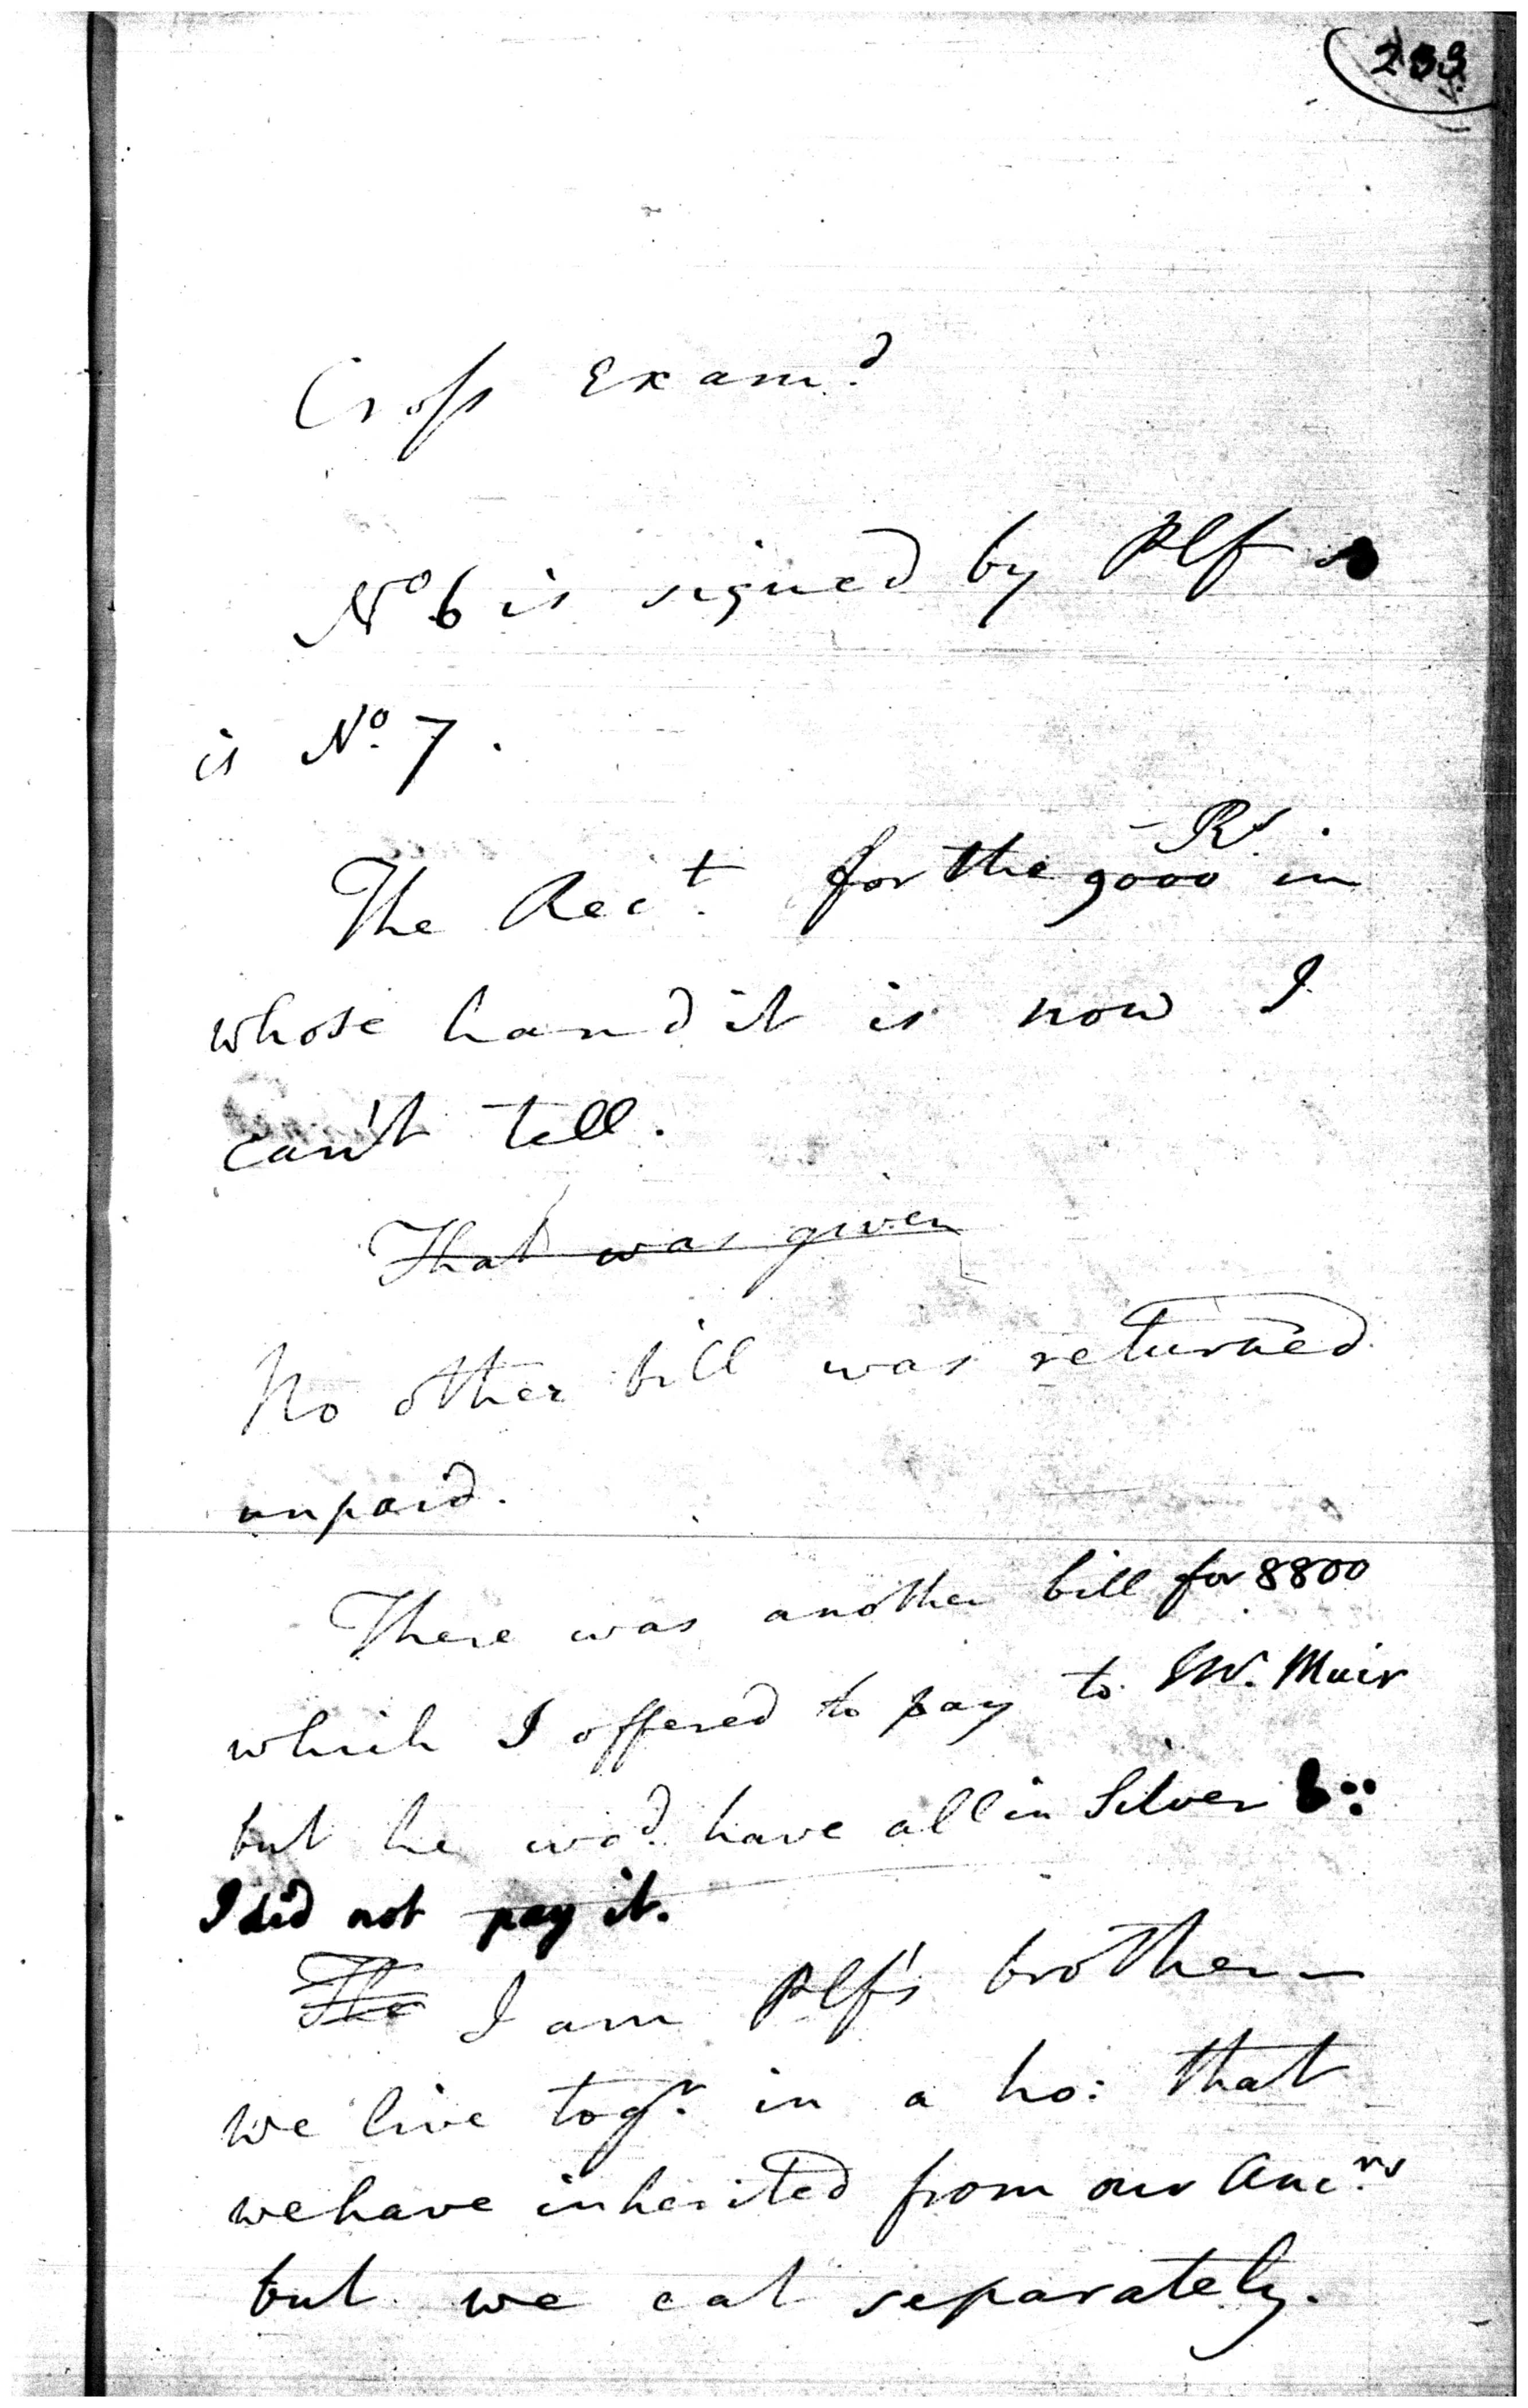 233
Cross Examd
No 6 is signed by Plf so
is No. 7.
Rs.
The Rect. for the 9000 in
whose hand it is now I
can't tell.
That was given
No other bill was returned
unpaid.
There was another bill for 8800
which I offered to pay to Mr. Muir
but he wod. have all in Silver &
I did not pay it.
The I am Plf's brother—
we live togr. in a ho: that
we have inherited from our Ancrs
but we eat separately.